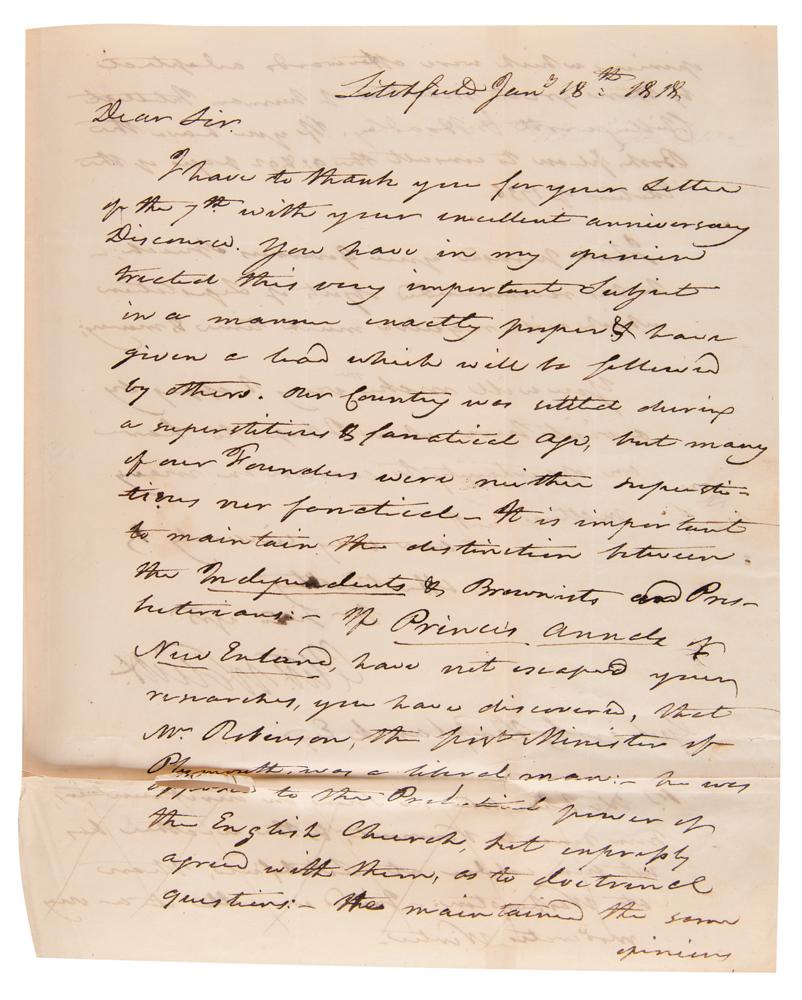 Litchfield Jany 18th 1818
Dear Sir.
I have to thank you for your Letter
of the 7th with your excellent anniversary
Discourse. You have in my opinion
treated this very important Subject
in a manner exactly proper & have
given a lead which will be followed
by others. Our Country was settled during
a superstitious & fanatical age, but many
of our Founders were neither supersti-
tious nor fanatical – It is important
to maintain the distinction between
the Independents & Brownists and Pres-
biterians: – If Princes Annals of
New England, have not escaped your
researches, you have discovered, that
Mr. Robinson, the first Minister of
Plymouth, was a liberal man: – he was
opposed to the power of
the English Church, but expressly
agreed with them, as to doctrinal
questions: – He maintained the same
opinions